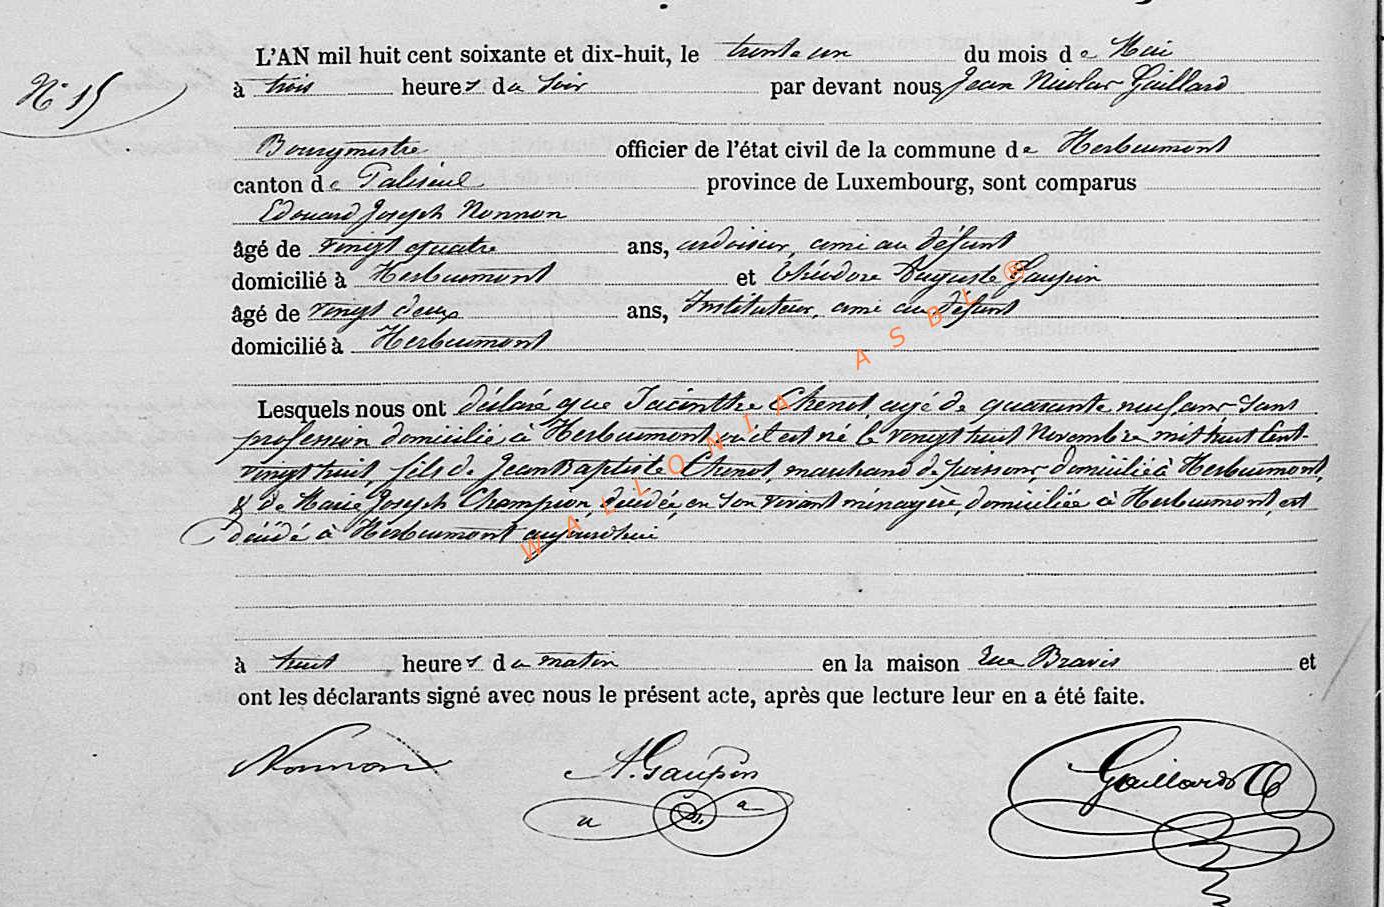 L'AN mil huit cent soixante et dix-huit, le trente un du mois de Mai
N° 15
à trois heures du soir par devant nous Jean Nicolas Gaillard
Bourgmestre officier de l'état civil de la commune de Herbeumont
canton de Paliseul province de Luxembourg, sont comparus
Edouard Joseph Nonnon
âgé de vingt quatre ans, ardoisier, ami au défunt
domicilié à Herbeumont et Théodore Auguste Gaupin
âgé de vingt deux ans, Instituteur, ami au défunt
domicilié à Herbeumont
Lesquels nous ont déclaré que Jacinthe Chenot, agé de quarante neuf ans, sans
profession domicilié à Herbeumont, où il est né le vingt huit Novembre mil huit cent
vingt huit, fils de Jean Baptiste Chenot, marchand de poissons, domicilié à Herbeumont,
& de Marie Joseph Champion, décédée, en son vivant ménagère, domiciliée à Herbeumont, est
décédé à Herbeumont aujourd'hui
à huit heures du matin en la maison Rue Bravis et
ont les déclarants signé avec nous le présent acte, après que lecture leur en a été faite.
Nonnon A. Gaupin Gaillard
WALLONIA ASBL ®